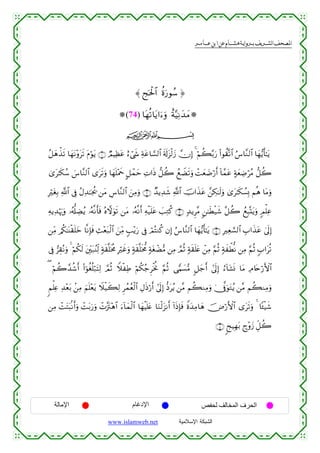 المصحف الشريف برواية هشام عن ابن عامر
﴿ سُورَةُ ٱلْحَجِّ ﴾
* مَدَنِيَّةٌ وَءَايَاتُهَا (74) *
بِسْمِ ٱللَّهِ ٱلرَّحْمَٰنِ ٱلرَّحِيمِ
يَٰٓأَيُّهَا ٱلنَّاسُ ٱتَّقُوا۟ رَبَّكُمْ ۚ إِنَّ زَلْزَلَةَ ٱلسَّاعَةِ شَىْءٌ عَظِيمٌ ۝ يَوْمَ تَرَوْنَهَا تَذْهَلُ
كُلُّ مُرْضِعَةٍ عَمَّآ أَرْضَعَتْ وَتَضَعُ كُلُّ ذَاتِ حَمْلٍ حَمْلَهَا وَتَرَى ٱلنَّاسَ سُكَٰرَىٰ
وَمَا هُم بِسُكَٰرَىٰ وَلَٰكِنَّ عَذَابَ ٱللَّهِ شَدِيدٌ ۝ وَمِنَ ٱلنَّاسِ مَن يُجَٰدِلُ فِى ٱللَّهِ بِغَيْرِ
عِلْمٍ وَيَتَّبِعُ كُلَّ شَيْطَٰنٍ مَّرِيدٍ ۝ كُتِبَ عَلَيْهِ أَنَّهُۥ مَن تَوَلَّاهُ فَأَنَّهُۥ يُضِلُّهُۥ وَيَهْدِيهِ
إِلَىٰ عَذَابِ ٱلسَّعِيرِ ۝ يَٰٓأَيُّهَا ٱلنَّاسُ إِن كُنتُمْ فِى رَيْبٍ مِّنَ ٱلْبَعْثِ فَإِنَّا خَلَقْنَٰكُم مِّن
تُرَابٍ ثُمَّ مِن نُّطْفَةٍ ثُمَّ مِنْ عَلَقَةٍ ثُمَّ مِن مُّضْغَةٍ مُّخَلَّقَةٍ وَغَيْرِ مُخَلَّقَةٍ لِّنُبَيِّنَ لَكُمْ ۚ وَنُقِرُّ فِى
ٱلْأَرْحَامِ مَا نَشَآءُ إِلَىٰٓ أَجَلٍ مُّسَمًّى ثُمَّ نُخْرِجُكُمْ طِفْلًا ثُمَّ لِتَبْلُغُوٓا۟ أَشُدَّكُمْ ۖ
وَمِنكُم مَّن يُتَوَفَّىٰ وَمِنكُم مَّن يُرَدُّ إِلَىٰٓ أَرْذَلِ ٱلْعُمُرِ لِكَيْلَا يَعْلَمَ مِنۢ بَعْدِ عِلْمٍ
شَيْـًٔا ۚ وَتَرَى ٱلْأَرْضَ هَامِدَةً فَإِذَآ أَنزَلْنَا عَلَيْهَا ٱلْمَآءَ ٱهْتَزَّتْ وَرَبَتْ وَأَنۢبَتَتْ مِن
كُلِّ زَوْجٍۭ بَهِيجٍ ۝
الحرف المخالف لحفص الإدغام الإمالة
الشبكة الإسلامية www.islamweb.net